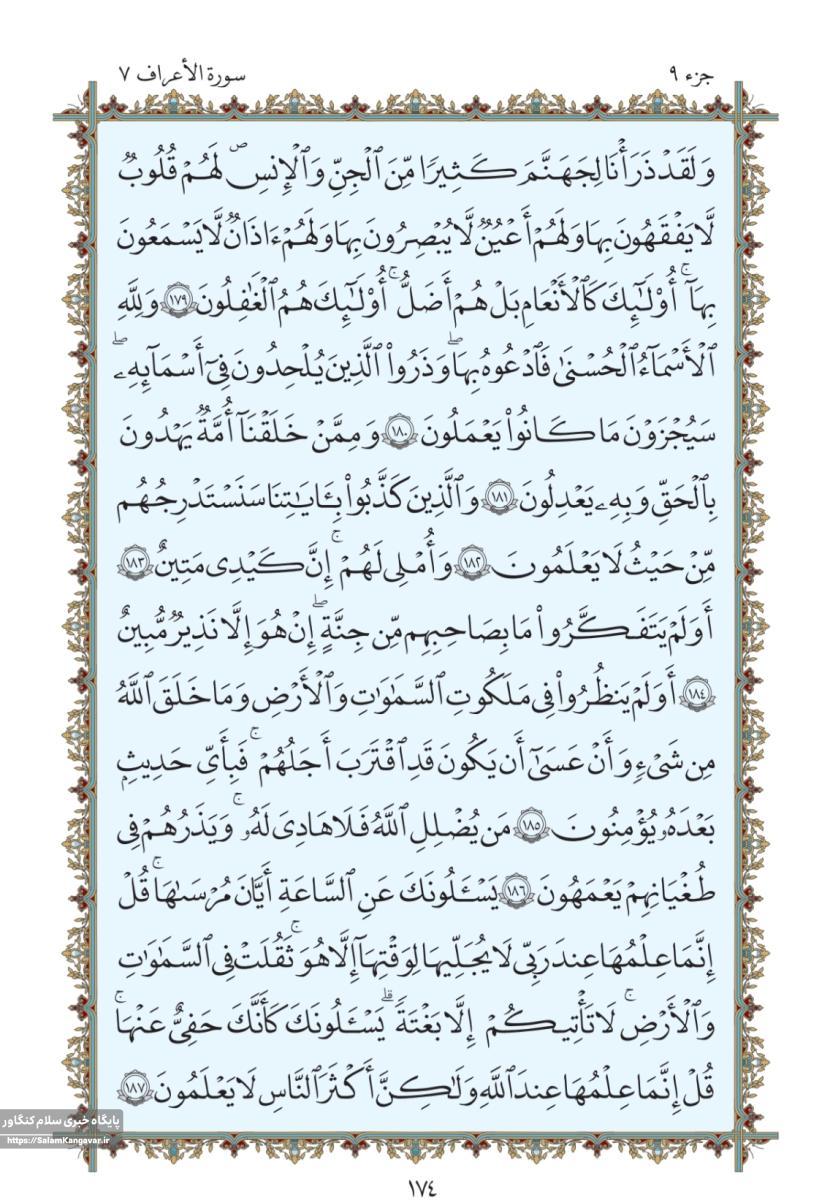 جزء ٩
سورة الأعراف ٧
وَلَقَدْ ذَرَأْنَا لِجَهَنَّمَ كَثِيرًا مِّنَ ٱلْجِنِّ وَٱلْإِنسِ ۖ لَهُمْ قُلُوبٌ
لَّا يَفْقَهُونَ بِهَا وَلَهُمْ أَعْيُنٌ لَّا يُبْصِرُونَ بِهَا وَلَهُمْ ءَاذَانٌ لَّا يَسْمَعُونَ
بِهَآ ۚ أُو۟لَـٰٓئِكَ كَٱلْأَنْعَـٰمِ بَلْ هُمْ أَضَلُّ ۚ أُو۟لَـٰٓئِكَ هُمُ ٱلْغَـٰفِلُونَ ١٧٩ وَلِلَّهِ
ٱلْأَسْمَآءُ ٱلْحُسْنَىٰ فَٱدْعُوهُ بِهَا ۖ وَذَرُوا۟ ٱلَّذِينَ يُلْحِدُونَ فِىٓ أَسْمَـٰٓئِهِۦ ۖ
سَيُجْزَوْنَ مَا كَانُوا۟ يَعْمَلُونَ ١٨٠ وَمِمَّنْ خَلَقْنَآ أُمَّةٌ يَهْدُونَ
بِٱلْحَقِّ وَبِهِۦ يَعْدِلُونَ ١٨١ وَٱلَّذِينَ كَذَّبُوا۟ بِـَٔايَـٰتِنَا سَنَسْتَدْرِجُهُم
مِّنْ حَيْثُ لَا يَعْلَمُونَ ١٨٢ وَأُمْلِى لَهُمْ ۚ إِنَّ كَيْدِى مَتِينٌ ١٨٣
أَوَلَمْ يَتَفَكَّرُوا۟ مَا بِصَاحِبِهِم مِّن جِنَّةٍ ۚ إِنْ هُوَ إِلَّا نَذِيرٌ مُّبِينٌ
١٨٤ أَوَلَمْ يَنظُرُوا۟ فِى مَلَكُوتِ ٱلسَّمَـٰوَٰتِ وَٱلْأَرْضِ وَمَا خَلَقَ ٱللَّهُ
مِن شَىْءٍ وَأَنْ عَسَىٰٓ أَن يَكُونَ قَدِ ٱقْتَرَبَ أَجَلُهُمْ ۖ فَبِأَىِّ حَدِيثٍۭ
بَعْدَهُۥ يُؤْمِنُونَ ١٨٥ مَن يُضْلِلِ ٱللَّهُ فَلَا هَادِىَ لَهُۥ ۚ وَيَذَرُهُمْ فِى
طُغْيَـٰنِهِمْ يَعْمَهُونَ ١٨٦ يَسْـَٔلُونَكَ عَنِ ٱلسَّاعَةِ أَيَّانَ مُرْسَىٰهَا ۖ قُلْ
إِنَّمَا عِلْمُهَا عِندَ رَبِّى لَا يُجَلِّيهَا لِوَقْتِهَآ إِلَّا هُوَ ۚ ثَقُلَتْ فِى ٱلسَّمَـٰوَٰتِ
وَٱلْأَرْضِ ۚ لَا تَأْتِيكُمْ إِلَّا بَغْتَةً ۗ يَسْـَٔلُونَكَ كَأَنَّكَ حَفِىٌّ عَنْهَا ۖ
قُلْ إِنَّمَا عِلْمُهَا عِندَ ٱللَّهِ وَلَـٰكِنَّ أَكْثَرَ ٱلنَّاسِ لَا يَعْلَمُونَ ١٨٧
پایگاه خبری سلام کنگاور
https://SalamKangavar.ir
١٧٤